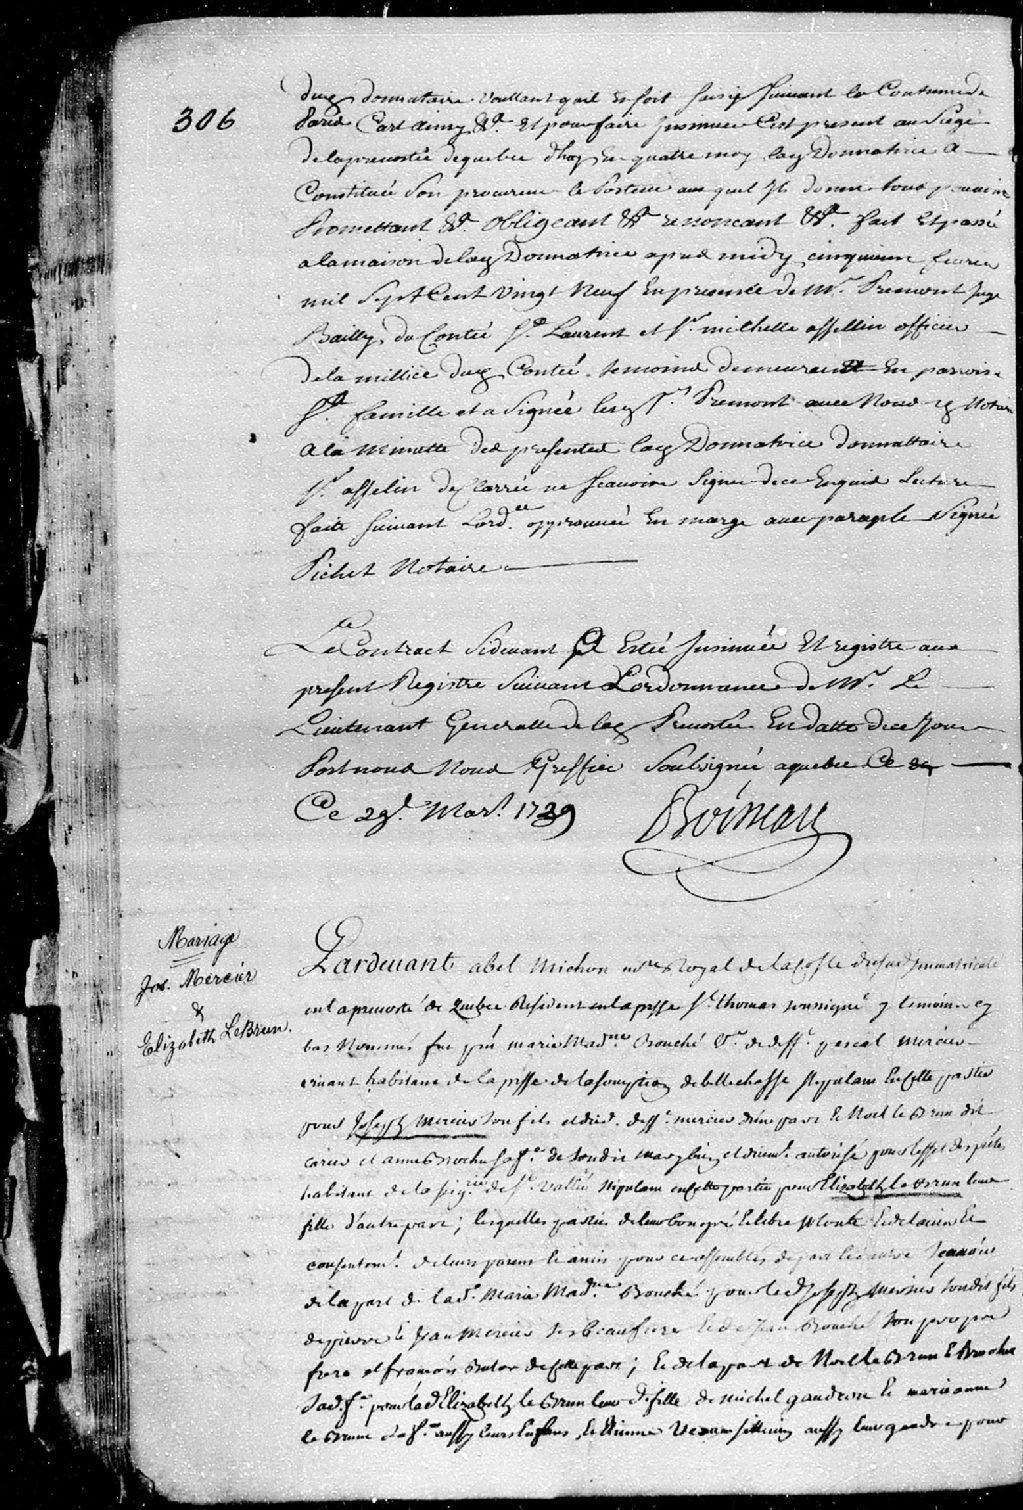 306
dud donnataire voullant quil En soit saisy suivant la Coutume de
Paris Car ainsy &a. Et pour faire Insinuer Cest present au Siege
de la prevosté de quebec dhuy En quatre moy lad Donnatrice a
Constitué Son procureur le Porteur au quel Il donne tous pouvoir
Promettant &a. Obligeant &a renoncant &a. fait Et passé
a la maison de lad Donnatrice apres midy cinquieme fevrier
mil Sept Cent Vingt Neuf En presence de Mr. Premont Juge
Bailly du Conté St. Laurent et Sr. michelle assellin officier
de la millice dud Conté temoins demeurant En paroisse
Ste. famille et a Signée led Sr. Premont avec Nous Notaire
a la Minutte des presentes lad Donnatrice donnattaire
Sr. asselin declarée ne scavoir Signer de ce Enquis Lecture
faite suivant Lord.ce approuvée En marge avec paraphe Signée
Pichet Notaire
Le Contract Sidevant A Esté Insinuée Et registre aux
present Registre Suivant Lordonnance de Mr. Le
Lieutenant Generalle de lad Prevosté En datte de ce Jour
Par nous Greffier Soussignée a quebec Ce
Ce 29e. Mars. 1729
Boisseau
Mariage
Jos. Mercier
&
Elizabeth LeBrun.
Pardevant abel Michon nre Royal de la Coste du sud Immatriculé
en la prevosté de Quebec Resident en la psse St. thomas soussigné temoins cy
bas Nommés fut pnt marie Madne Bouché Ve. de deff. pascal mercier
vivant habitant de la psse de lasomption de bellechasse stipulant En cette partie
pour Joseph Mercier son fils et dud. deff. mercier dune part Et Noel le Brun dit
carier et anne Brochu sa fe. de son dit mary bien et duemt. autorisée pour leffet des ptes
habitant de la seigrie de St. Vallié stipulant en cette partie pour Elizabeth le Brun leur
fille d'autre part; lesquelles parties de leur bon gré Et libre volonté Et de lavis Et
consentemt. de leurs parens Et amis pour ce assemblés de part Et dautre scavoir
de la part de lad. Marie Madne Bouché pour led Joseph Mercier son dit fils
de pierre Et Jean Mercier ses beaufrere Bouché son propre
frere et francois de cette part; Et de la part de Noel le Brun Et Brochu
sad fe. pour lad Elizabeth le Brun leur de fille de michel gaudron Et marianne
le Brun sa fe. aussy leurs Enfans, Et Etienne aussy leur gendre pour